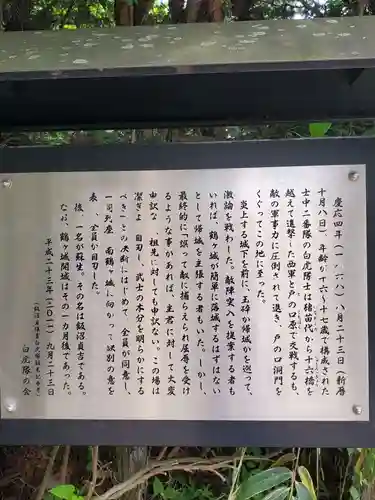 慶応四年(一八六八)八月二十三日(新暦
十月八日)、年齢が十六〜十七歳で構成された
士中二番隊の白虎隊士は猪苗代から十六橋を
越えて進撃した西軍と戸の口原で交戦するも、
敵の軍事力に圧倒されて退き、戸の口洞門を
くぐってこの地に至った。
炎上する城下を前に、玉砕か帰城かを巡って、
激論を戦わした。敵陣突入を提案する者も
いれば、鶴ヶ城が簡単に落城するはずはない
として帰城を主張する者もいた。しかし、
最終的に「誤って敵に捕らえられ屈辱を受け
るような事があれば、主君に対して大変
申訳な、祖先に対しても申訳ない。この場は
潔ぎよ、自刃し、武士の本分を明らかにする
べき」との決断にはじめて、全員が同意し、
一同列座、南鶴ヶ城に向かって訣別の意を
表、全員が自刃した。
後、一名が蘇生、その名は飯沼貞吉である。
なお、鶴ヶ城開城はその一カ月後であった。
平成二十三年(二〇一一)九月二十三日
白虎隊の会